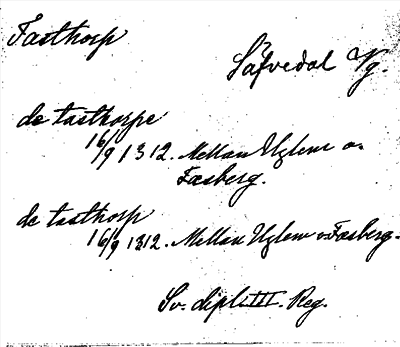 Fasthorp
Säfvedal Vg.
de tasthorpe
16/9 1312. Mellan Uglem o.
Fæsberg.
de tasthorp
16/9 1312. Mellan Uglem o Fæsberg.
Sv. dipl. III. Reg.